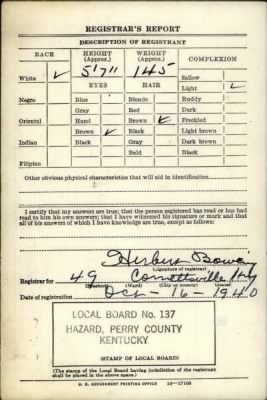 REGISTRAR'S REPORT
DESCRIPTION OF REGISTRANT
RACE HEIGHT (Approx.) WEIGHT (Approx.) COMPLEXION
5'7" 145 Sallow
White ✓ EYES HAIR Light ✓
Negro Blue Blonde Ruddy
Gray Red Dark
Oriental Hazel Brown ✓ Freckled
Brown ✓ Black Light brown
Indian Black Gray Dark brown
Bald Black
Filipino
Other obvious physical characteristics that will aid in identification
I certify that my answers are true; that the person registered has read or has had
read to him his own answers; that I have witnessed his signature or mark and that
all of his answers of which I have knowledge are true, except as follows:
Herbert
(Signature of registrar)
Registrar for 49 Cornettsville Ky
(Precinct) (Ward) (City or county) (State)
Date of registration Oct-16-1940
LOCAL BOARD No. 137
HAZARD, PERRY COUNTY
KENTUCKY
(STAMP OF LOCAL BOARD)
(The stamp of the Local Board having jurisdiction of the registrant
shall be placed in the above space.)
U. S. GOVERNMENT PRINTING OFFICE 16-17105